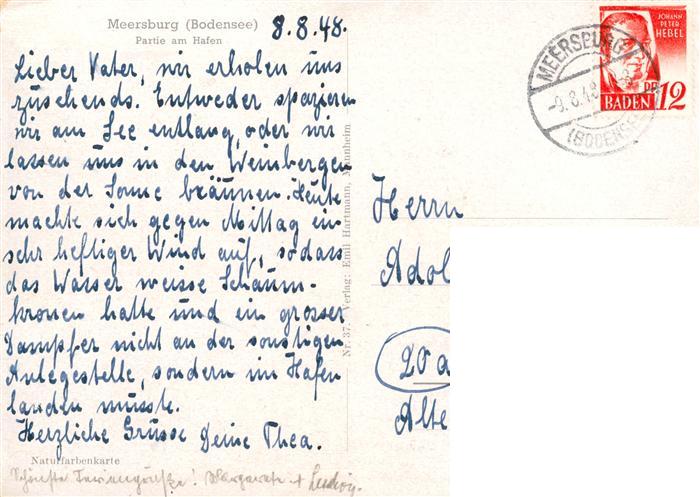 Meersburg (Bodensee)
Partie am Hafen
8.8.48.
Lieber Vater, wir erholen uns
zusehends. Entweder spazieren
wir am See entlang, oder wir
lassen uns in den Weinbergen
von der Sonne bräunen. Heute
machte sich gegen Mittag ein
sehr heftiger Wind auf, sodass
das Wasser weisse Schaum-
kronen hatte und ein grosser
Dampfer nicht an der sonstigen
Anlegestelle, sondern im Hafen
landen musste.
Herzliche Grüsse Deine Thea.
Naturfarbenkarte
Schönste Feriengrüße! Margarete + Ludwig.
Nr. 37. Verlag: Emil Hartmann, Mannheim
MEERSBURG
-9.8.48
(BODENSEE)
JOHANN
PETER
HEBEL
PF.
BADEN 12
Herrn
Adol
20a
Alte